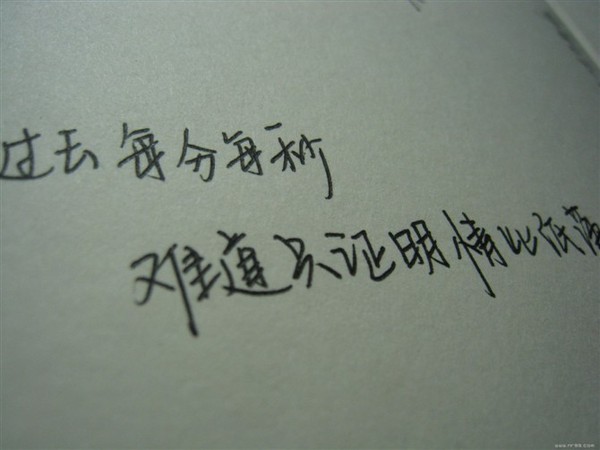 过去每分每秒
难道只证明情比纸薄